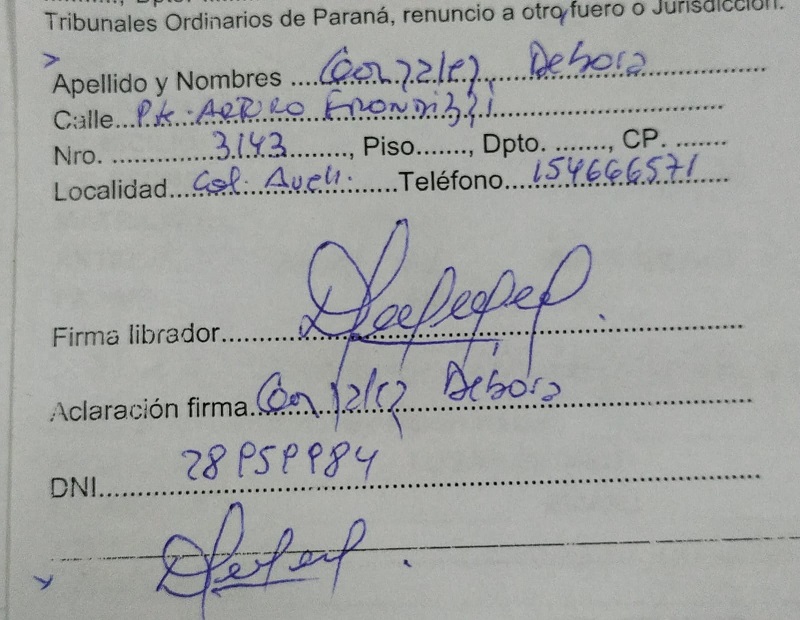 Tribunales Ordinarios de Paraná, renuncio a otro fuero o Jurisdicción.
Apellido y Nombres .... Gonzalez Debora
Calle... Pte. Arturo Frondizzi
Nro. .......... 3143 ........, Piso......., Dpto. ......., CP. .......
Localidad... Col. Avell. ......Teléfono... 154666571
Firma librador
Aclaración firma. Gonzalez Débora
DNI... 28959984